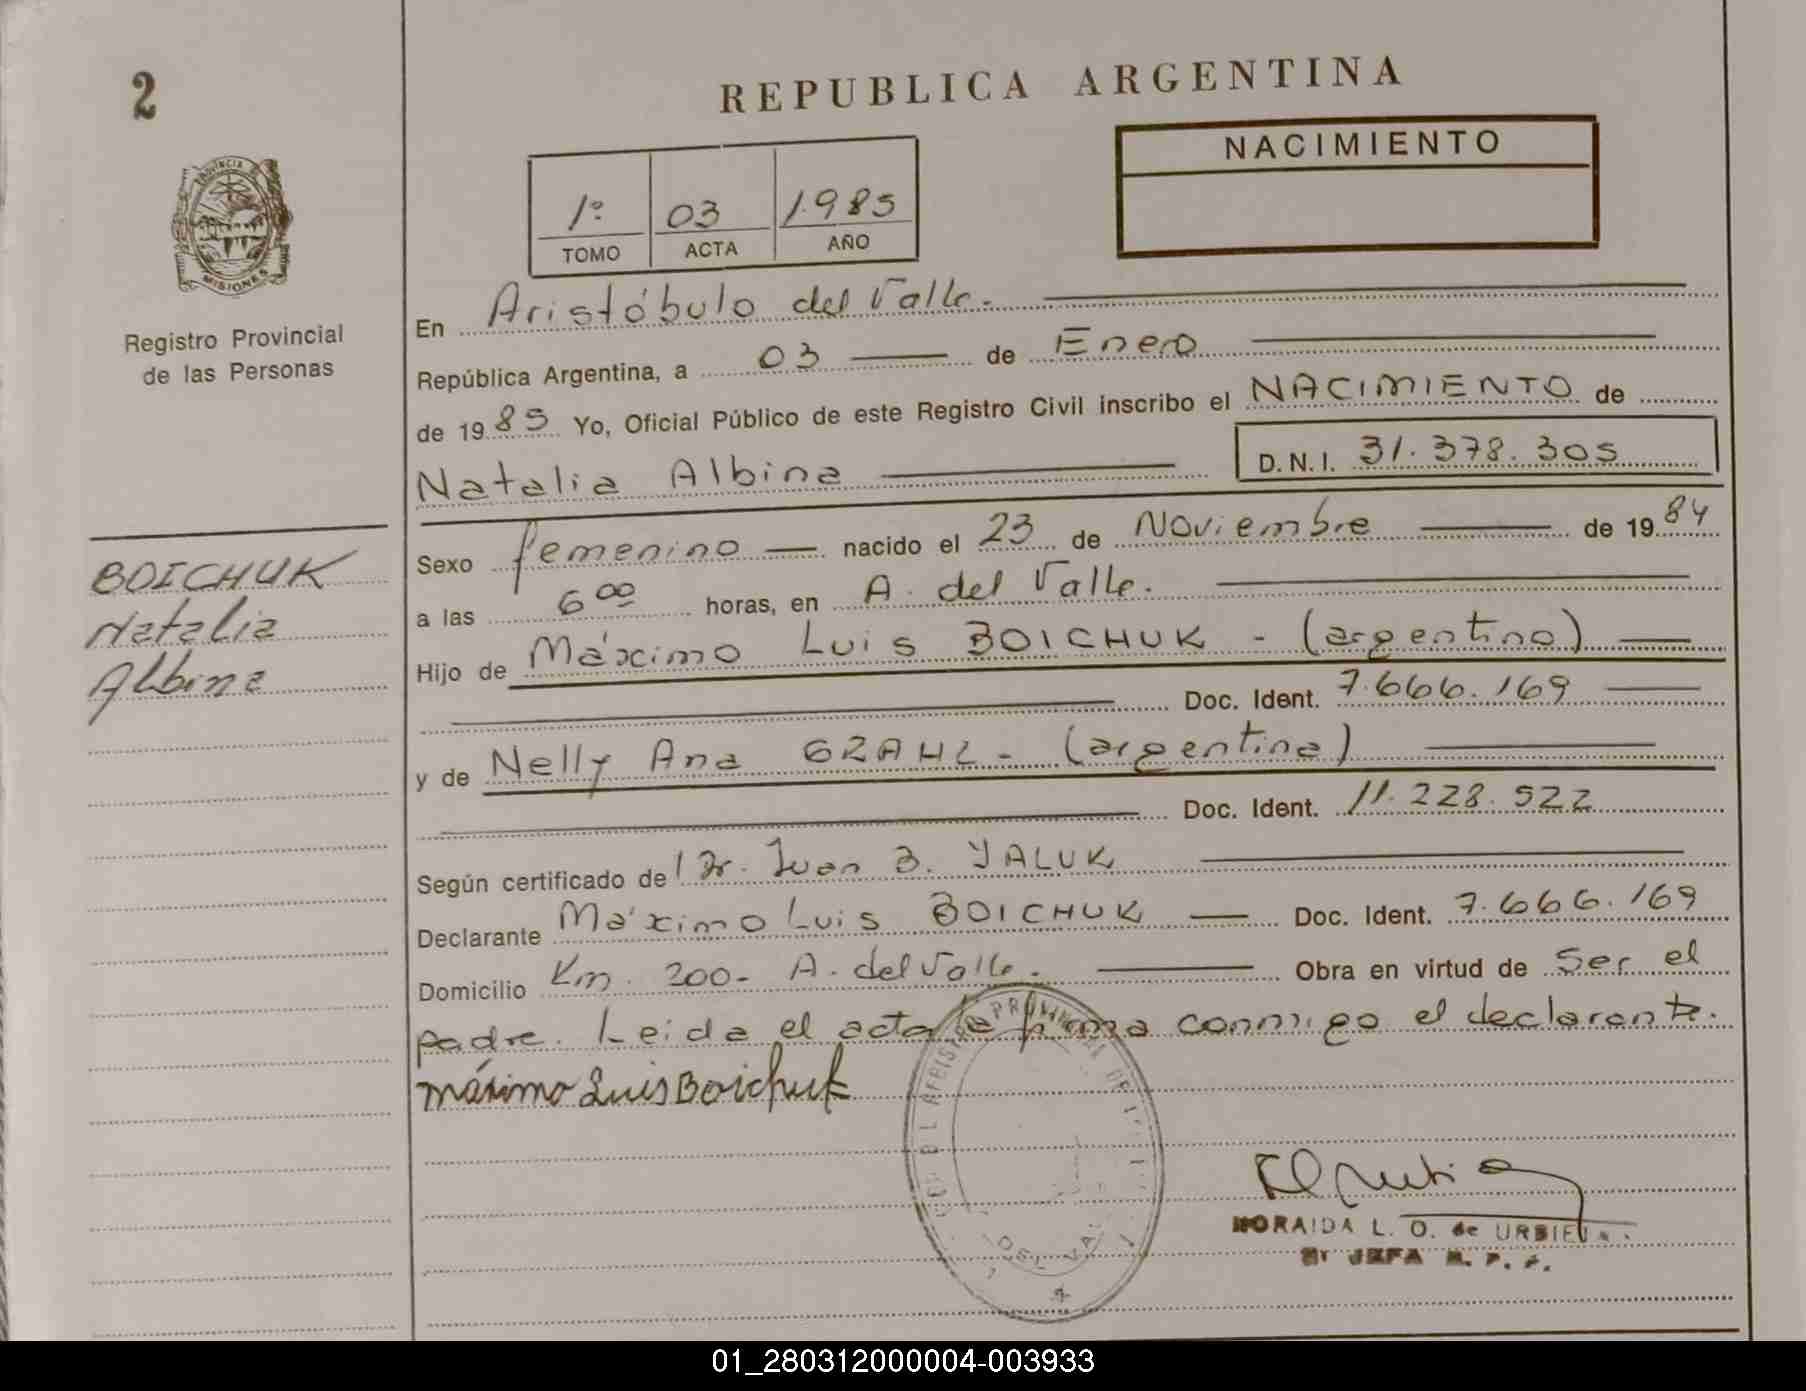 2
REPUBLICA ARGENTINA
NACIMIENTO
1º 03 1985
TOMO ACTA AÑO
PROVINCIA
MISIONES
Registro Provincial
de las Personas
BOICHUK
Natalia
Albina
En Aristóbulo del Valle.
República Argentina, a 03 de Enero
de 1985 Yo, Oficial Público de este Registro Civil inscribo el NACIMIENTO de
Natalia Albina D.N.I. 31.378.305
Sexo femenino nacido el 23 de Noviembre de 1984
a las 6 00 horas, en A. del Valle.
Hijo de Máximo Luis BOICHUK - (argentino)
Doc. Ident. 7.666.169
y de Nelly Ana GRAHL - (argentina)
Doc. Ident. 11.228.522
Según certificado de Dr. Juan B. YALUK
Declarante Máximo Luis BOICHUK Doc. Ident. 7.666.169
Domicilio Km. 200- A. del Valle. Obra en virtud de ser el
padre. Leida el acta la firma conmigo el declarante.
Máximo Luis Boichuk
NORAIDA L. O. de URBIETA
JEFA R. P. P.
01_280312000004-003933